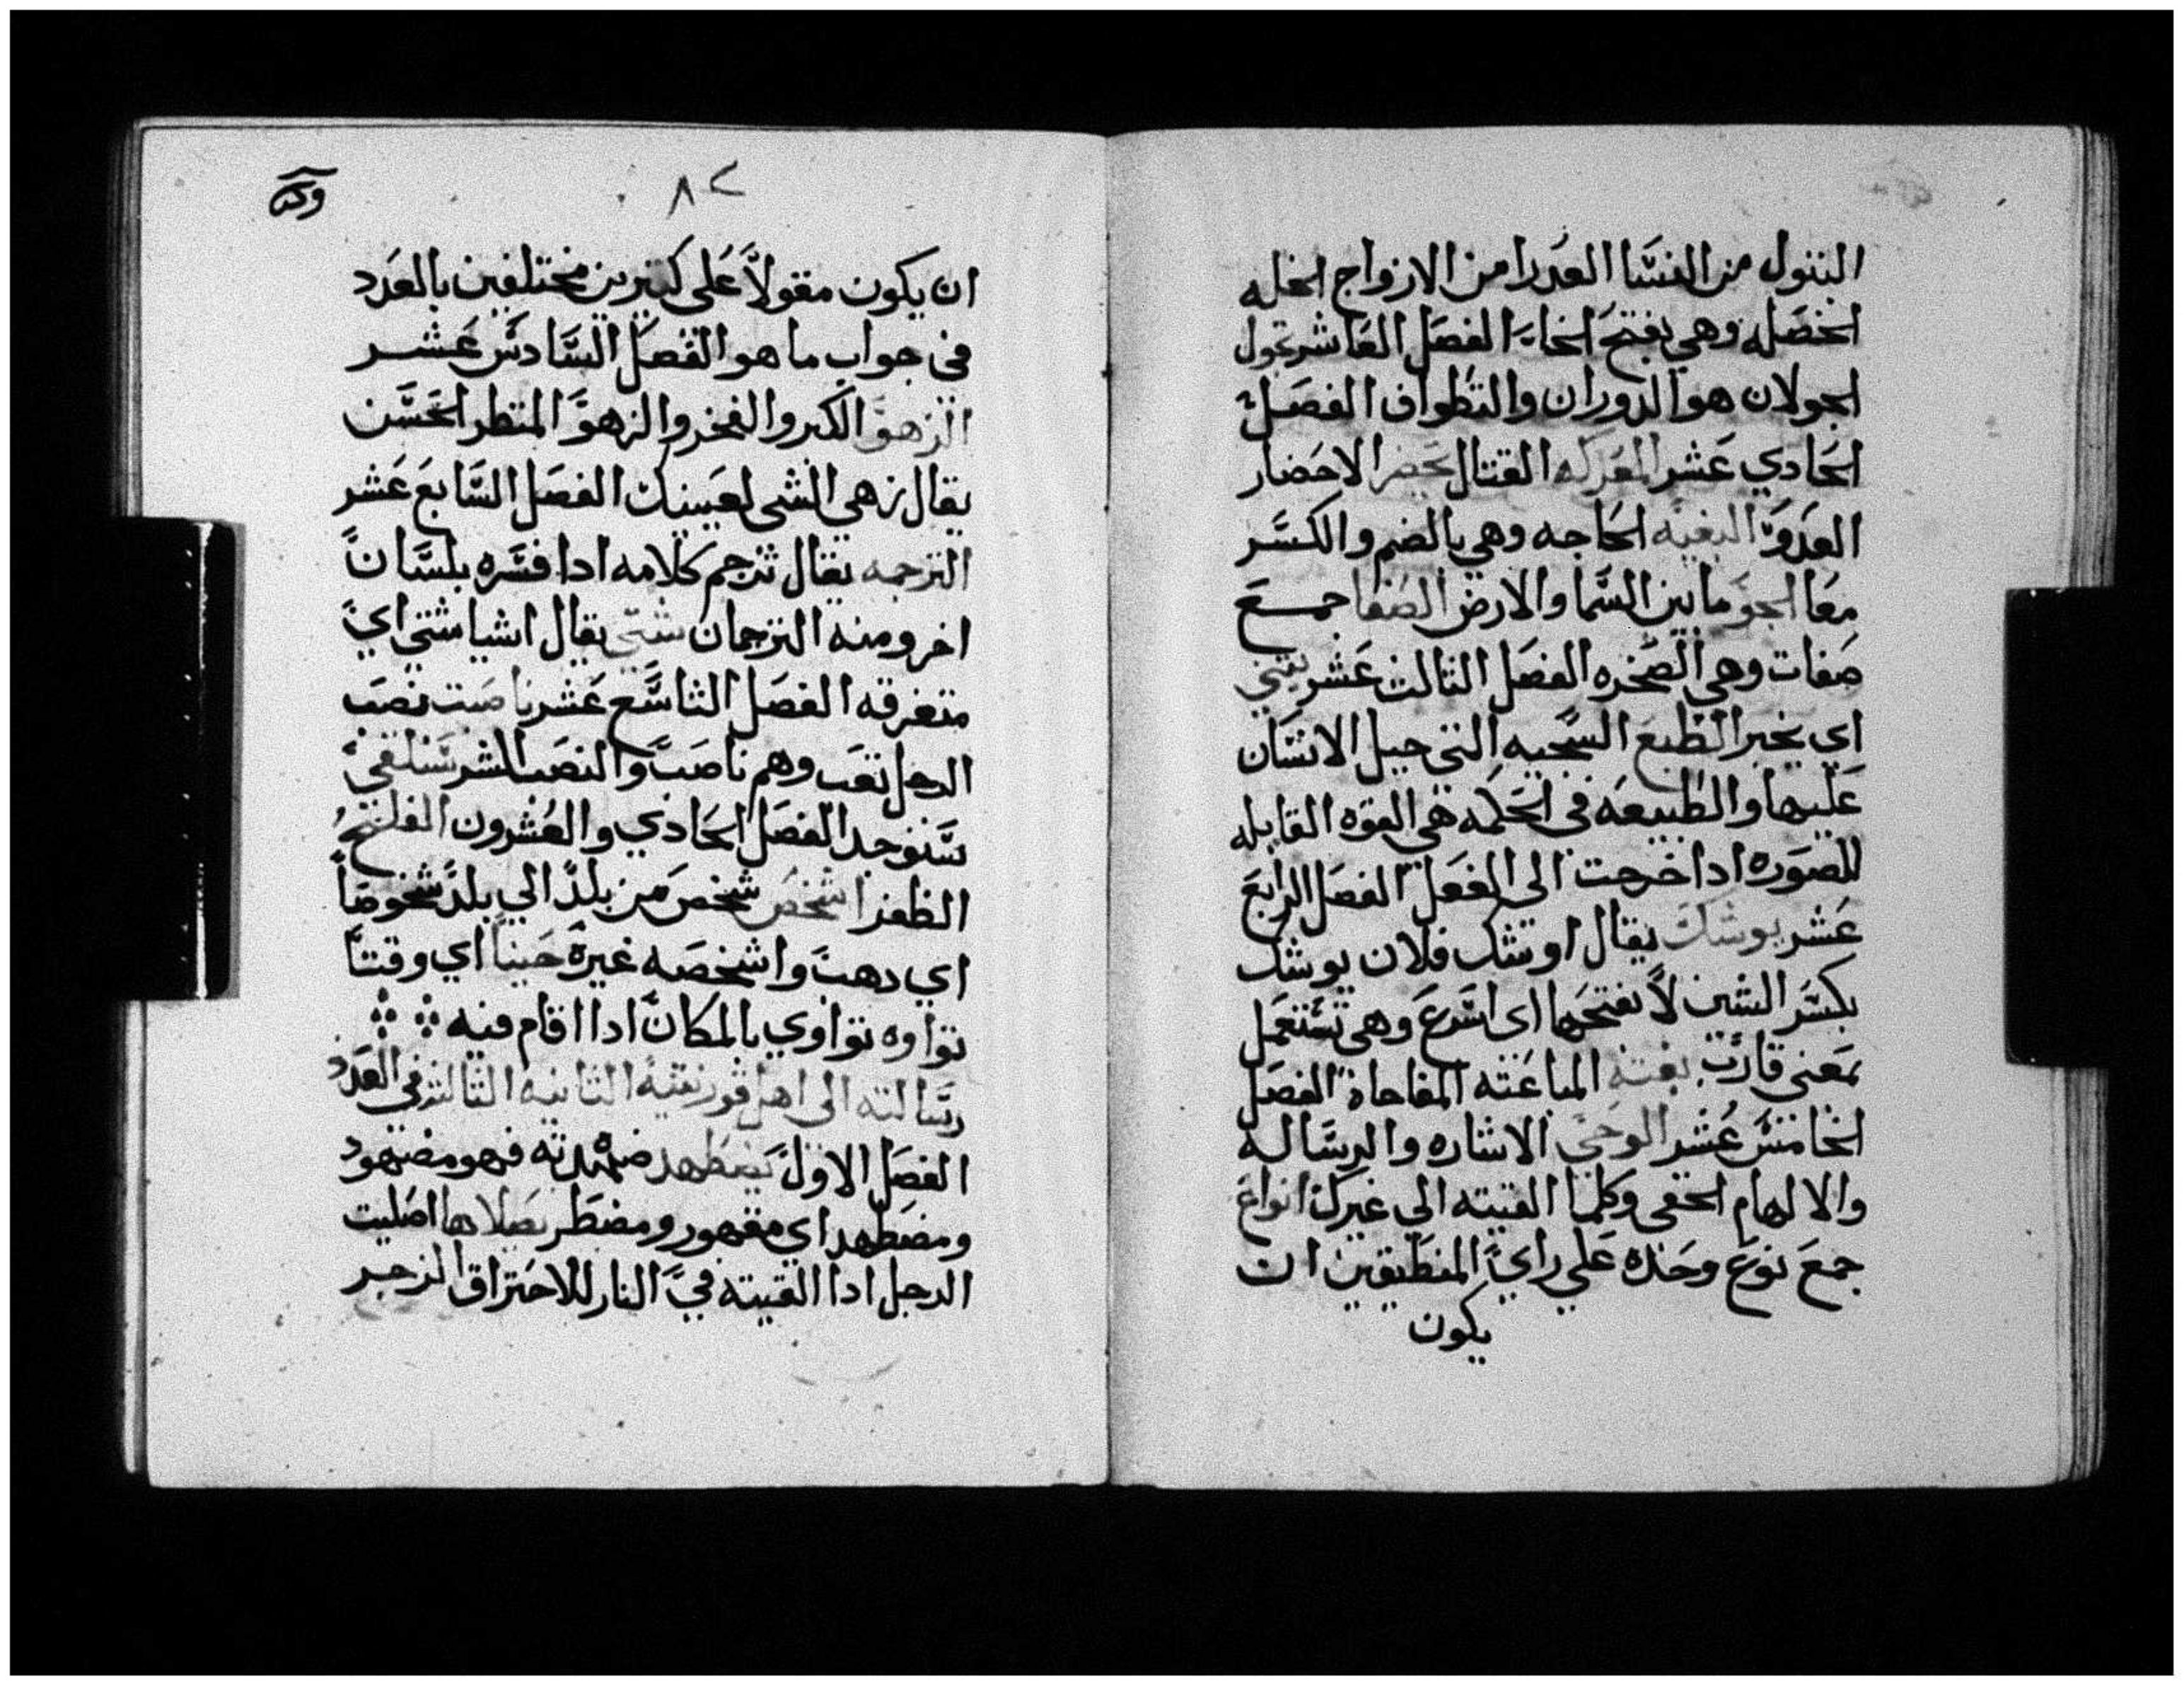 البتول من النسا العدرا من الازواج الخله
الخصله وهي بفتح الخاء الفصل العاشر تجول
الجولان هو الدوران والتطواف الفصل
الحادي عشر المعركه القتال يحضر الاحضار
العدو البغيه الحاجه وهي بالضم والكسر
معا الجو ما بين السما والارض الصفا جمع
صفات وهي الصخره الفصل الثالث عشر ينبي
اي يخبر الطبع السجيه التي جبل الانسان
عليها والطبيعه في الحكمه هي القوه القابله
للصوره ادا خرجت الى الفعل الفصل الرابع
عشر يوشك يقال اوشك فلان يوشك
بكسر الشين لا بفتحها اى اسرع وهي تستعمل
بمعني قارب بغتة المباغته المفاجاة الفصل
الخامس عشر الوحي الاشاره والرساله
والالهام الخفى وكلما القيته الي غيرك انواع
جمع نوع وحده علي راي المنطيقين ان
يكون
٨٢
ان يكون مقولا على كتيرين مختلفين بالعدد
فى جواب ما هو الفصل السادس عشر
الزهو الكبر والفخر والزهو المنظر الحسن
يقال زهي الشى لعينيك الفصل السابع عشر
الترجمه يقال ترجم كلامه ادا فسره بلسان
اخر ومنه الترجمان شتي يقال اشيا شتي اي
متفرقه الفصل التاسع عشر ناصبت نصب
الرجل تعب وهم ناصب والنصب الشر ستلفي
ستوجد الفصل الحادي والعشرون الفلج
الظفر اشخص شخص من بلد الي بلد شخوصا
اي دهب واشخصه غيره حينا اي وقتا
تواوه تواوي بالمكان ادا اقام فيه
رسالته الى اهل قورنتية الثانيه الثالثه في العدد
الفصل الاول يضطهد ضهدته فهو مضهود
ومضطهد اي مقهور ومضطر بصلادها اصليت
الرجل ادا القيته في النار للاحتراق الزجر